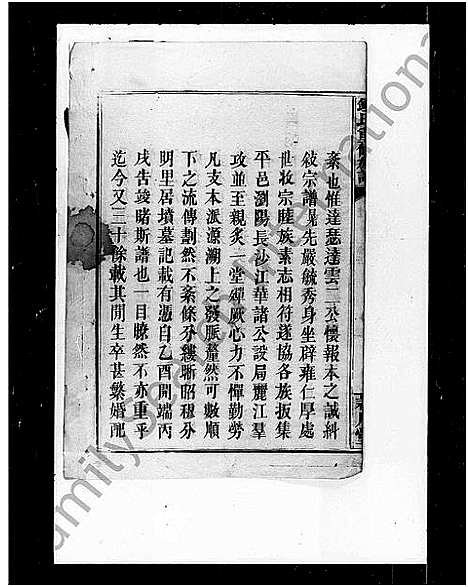 紊也惟達瑟達雲二公懷報本之誠糾
敍宗譜晁先嚴毓秀身坐辟雍仁厚處
世收宗睦族素志相符遂協各族扳集
平邑瀏陽長沙江華諸公設局麗江羣
攻並至親炙一堂殫厥心力不憚勤勞
凡支本派源溯上之發脈釐然可數順
下之流傳劃然不紊條分縷晰昭穆分
明里居墳墓記載有憑自乙酉開端丙
戌告竣睹斯譜也一目瞭然不亦重乎
迄今又三十餘載其間生卒甚繁婚配
Family Tree International